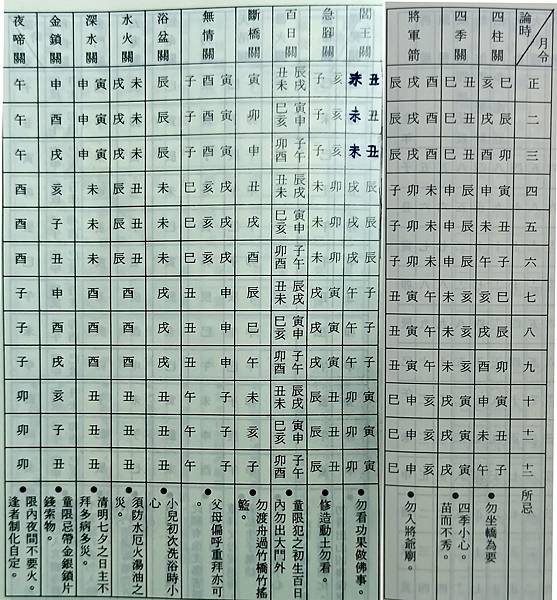 月令 論時 正 二 三 四 五 六 七 八 九 十 十一 十二 所忌
四柱關 巳亥 辰戌 卯酉 寅申 丑未 子午 巳亥 辰戌 卯酉 寅申 丑未 子午 ●勿坐橋為要
四季關 丑巳 丑巳 丑巳 辰申 辰申 辰申 亥未 亥未 亥未 寅戌 寅戌 寅戌 ●四季小心。
苗而不秀。
將軍箭 酉戌辰 酉戌辰 酉戌辰 未卯子 未卯子 未卯子 午寅丑 午寅丑 午寅丑 亥申巳 亥申巳 亥申巳 ●勿入將爺廟。
閻王關 丑未 丑未 丑未 辰戌 辰戌 辰戌 子午 子午 子午 寅卯 寅卯 寅卯 ●勿看功果做佛事。
急腳關 亥子 亥子 亥子 卯未 卯未 卯未 寅戌 寅戌 寅戌 丑辰 丑辰 丑辰 ●修造動土勿看。
百日關 辰戌丑未 寅申巳亥 子午卯酉 辰戌丑未 寅申巳亥 子午卯酉 辰戌丑未 寅申巳亥 子午卯酉 辰戌丑未 寅申巳亥 子午卯酉 ●童限犯之初生百日
內勿出大門外
斷橋關 寅 卯 申 丑 戌 酉 辰 巳 午 未 亥 子 ●勿渡舟過竹橋竹搖
籃。
無情關 寅酉子 寅酉子 寅酉子 戌亥巳 戌亥巳 戌亥巳 申丑 申丑 申丑 子午 子午 子午 ●父母偏呼重拜亦可
。
浴盆關 辰 辰 辰 未 未 未 戌 戌 戌 丑 丑 丑 ●小兒初次洗浴時小
心
水火關 未戌 未戌 未戌 丑辰 丑辰 丑辰 酉 酉 酉 丑 丑 丑 ●須防水厄火湯油之
災。
深水關 寅申 寅申 寅申 未 未 未 酉 酉 酉 丑 丑 丑 ●清明七夕之日主不
拜多病多災。
金鎖關 申 酉 戌 亥 子 丑 申 酉 戌 亥 子 丑 ●童限忌帶金銀鎖片
錢索物。
夜啼關 午 午 午 酉 酉 酉 子 子 子 卯 卯 卯 ●限內夜間不要火。
逢者制化自定。